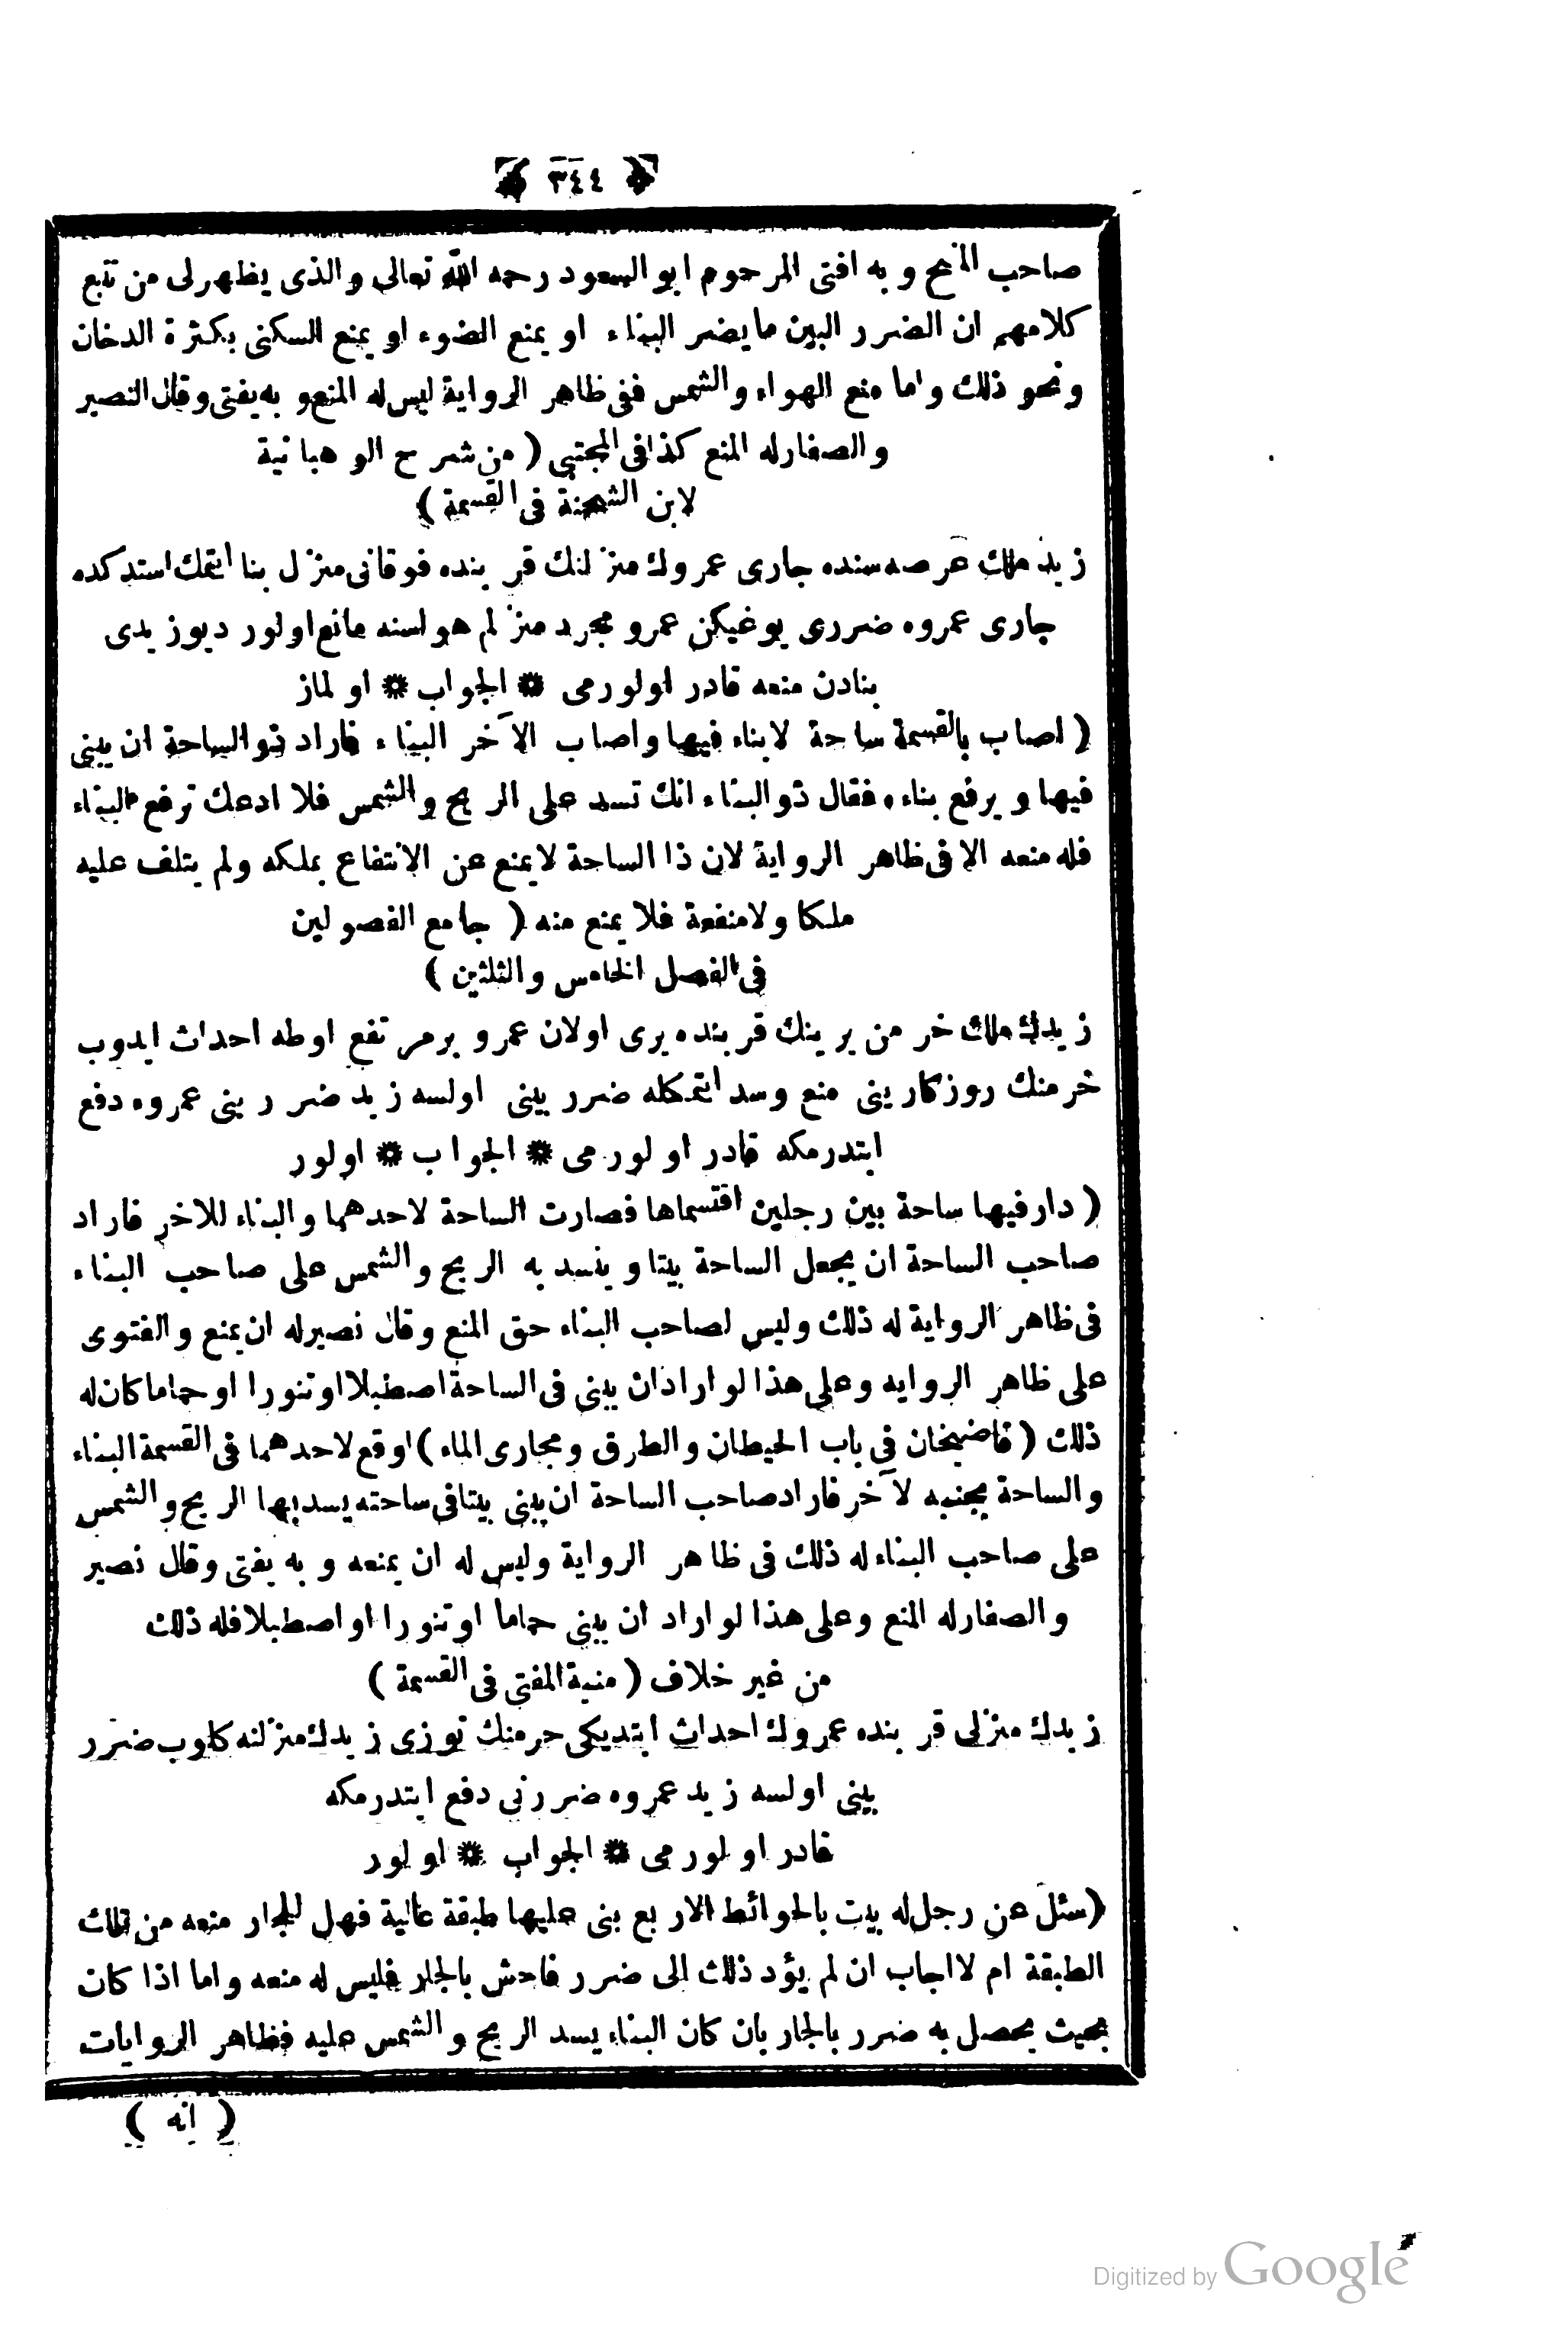 ﴿ ٣٤٤ ﴾
صاحب المنح وبه افتى المرحوم ابو السعود رحمه الله تعالى والذى يظهر لى من تتبع
كلامهم ان الضرر البين ما يضر البناء او يمنع الضوء او يمنع السكنى بكثرة الدخان
ونحو ذلك واما منع الهواء والشمس ففى ظاهر الرواية ليس له المنع وبه يفتى وقال النصير
والصفار له المنع كذا فى المجتبى ( من شرح الوهبانية
لابن الشحنة فى القسمة )
زيد ملك عرصه سنده جارى عمروك منزلنك قربنده فوقانى منزل بنا ايتمك استدكده
جارى عمروه ضررى يوغيكن عمرو مجرد منزلم هواسنه مانع اولور ديو زيدى
بنادن منعه قادر اولورمى * الجواب * اولماز
( اصاب بالقسمة ساحة لابناء فيها واصاب الآخر البناء فاراد ذو الساحة ان يبنى
فيها ويرفع بناءه فقال ذو البناء انك تسد على الريح والشمس فلا ادعك ترفع البناء
فله منعه الا فى ظاهر الرواية لان ذا الساحة لا يمنع عن الانتفاع بملكه ولم يتلف عليه
ملكا ولا منفعة فلا يمنع منه ( جامع الفصولين
فى الفصل الخامس والثلثين )
زيدك ملك خرمن يرينك قربنده يرى اولان عمرو بر مرتفع اوطه احداث ايدوب
خرمنك روزكارينى منع وسد ايتمكله ضرر بينى اولسه زيد ضررينى عمروه دفع
ايتدرمكه قادر اولورمى * الجواب * اولور
( دار فيها ساحة بين رجلين اقتسماها فصارت الساحة لاحدهما والبناء للاخر فاراد
صاحب الساحة ان يجعل الساحة بيتا وينسد به الريح والشمس على صاحب البناء
فى ظاهر الرواية له ذلك وليس لصاحب البناء حق المنع وقال نصير له ان يمنع والفتوى
على ظاهر الروايه وعلى هذا لو اراد ان يبنى فى الساحة اصطبلا او تنورا او حماما كان له
ذلك ( قاضيخان فى باب الحيطان والطرق ومجارى الماء ) اوقع لاحدهما فى القسمة البناء
والساحة بجنبه لآخر فاراد صاحب الساحة ان يبنى بيتا فى ساحته يسد بها الريح والشمس
على صاحب البناء له ذلك فى ظاهر الرواية وليس له ان يمنعه وبه يفتى وقال نصير
والصفار له المنع وعلى هذا لو اراد ان يبنى حماما او تنورا او اصطبلا فله ذلك
من غير خلاف ( منية المفتى فى القسمة )
زيدك منزلى قربنده عمروك احداث ايتديكى حرمنك توزى زيدك منزلنه كلوب ضرر
بينى اولسه زيد عمروه ضررنى دفع ايتدرمكه
قادر اولورمى * الجواب * اولور
( سئل عن رجل له بيت بالحوائط الاربع بنى عليها طبقة عالية فهل للجار منعه من تلك
الطبقة ام لا اجاب ان لم يؤد ذلك الى ضرر فاحش بالجار فليس له منعه واما اذا كان
بحيث يحصل به ضرر بالجار بان كان البناء يسد الريح والشمس عليه فظاهر الروايات
( انه )
Digitized by Google